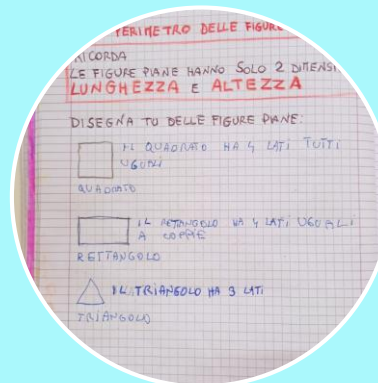 PERIMETRO DELLE FIGURE
RICORDA
LE FIGURE PIANE HANNO SOLO 2 DIMENSI
LUNGHEZZA E ALTEZZA
DISEGNA TU DELLE FIGURE PIANE:
IL QUADRATO HA 4 LATI TUTTI
UGUALI
QUADRATO
IL RETANGOLO HA 4 LATI UGUALI
A COPPIE
RETTANGOLO
IL TRIANGOLO HA 3 LATI
TRIANGOLO